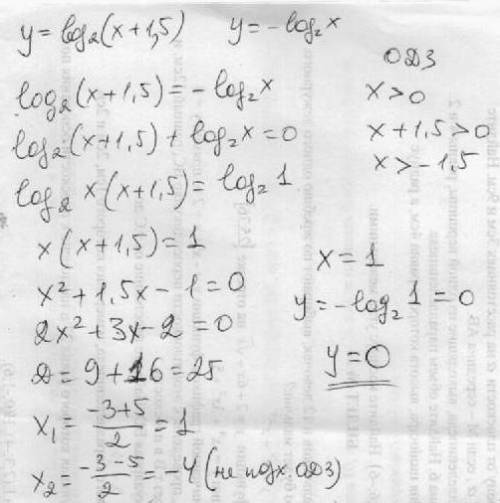 y = log₂(x+1,5)    y = -log₂x
log₂(x+1,5) = -log₂x
log₂(x+1,5) + log₂x = 0
log₂ x(x+1,5) = log₂ 1
x(x+1,5) = 1
x² + 1,5x - 1 = 0
2x² + 3x - 2 = 0
D = 9 + 16 = 25
x₁ = (-3+5)/2 = 1
x₂ = (-3-5)/2 = -4 (не подх. ОДЗ)
ОДЗ
x > 0
x + 1,5 > 0
x > -1,5
x = 1
y = -log₂ 1 = 0
y = 0